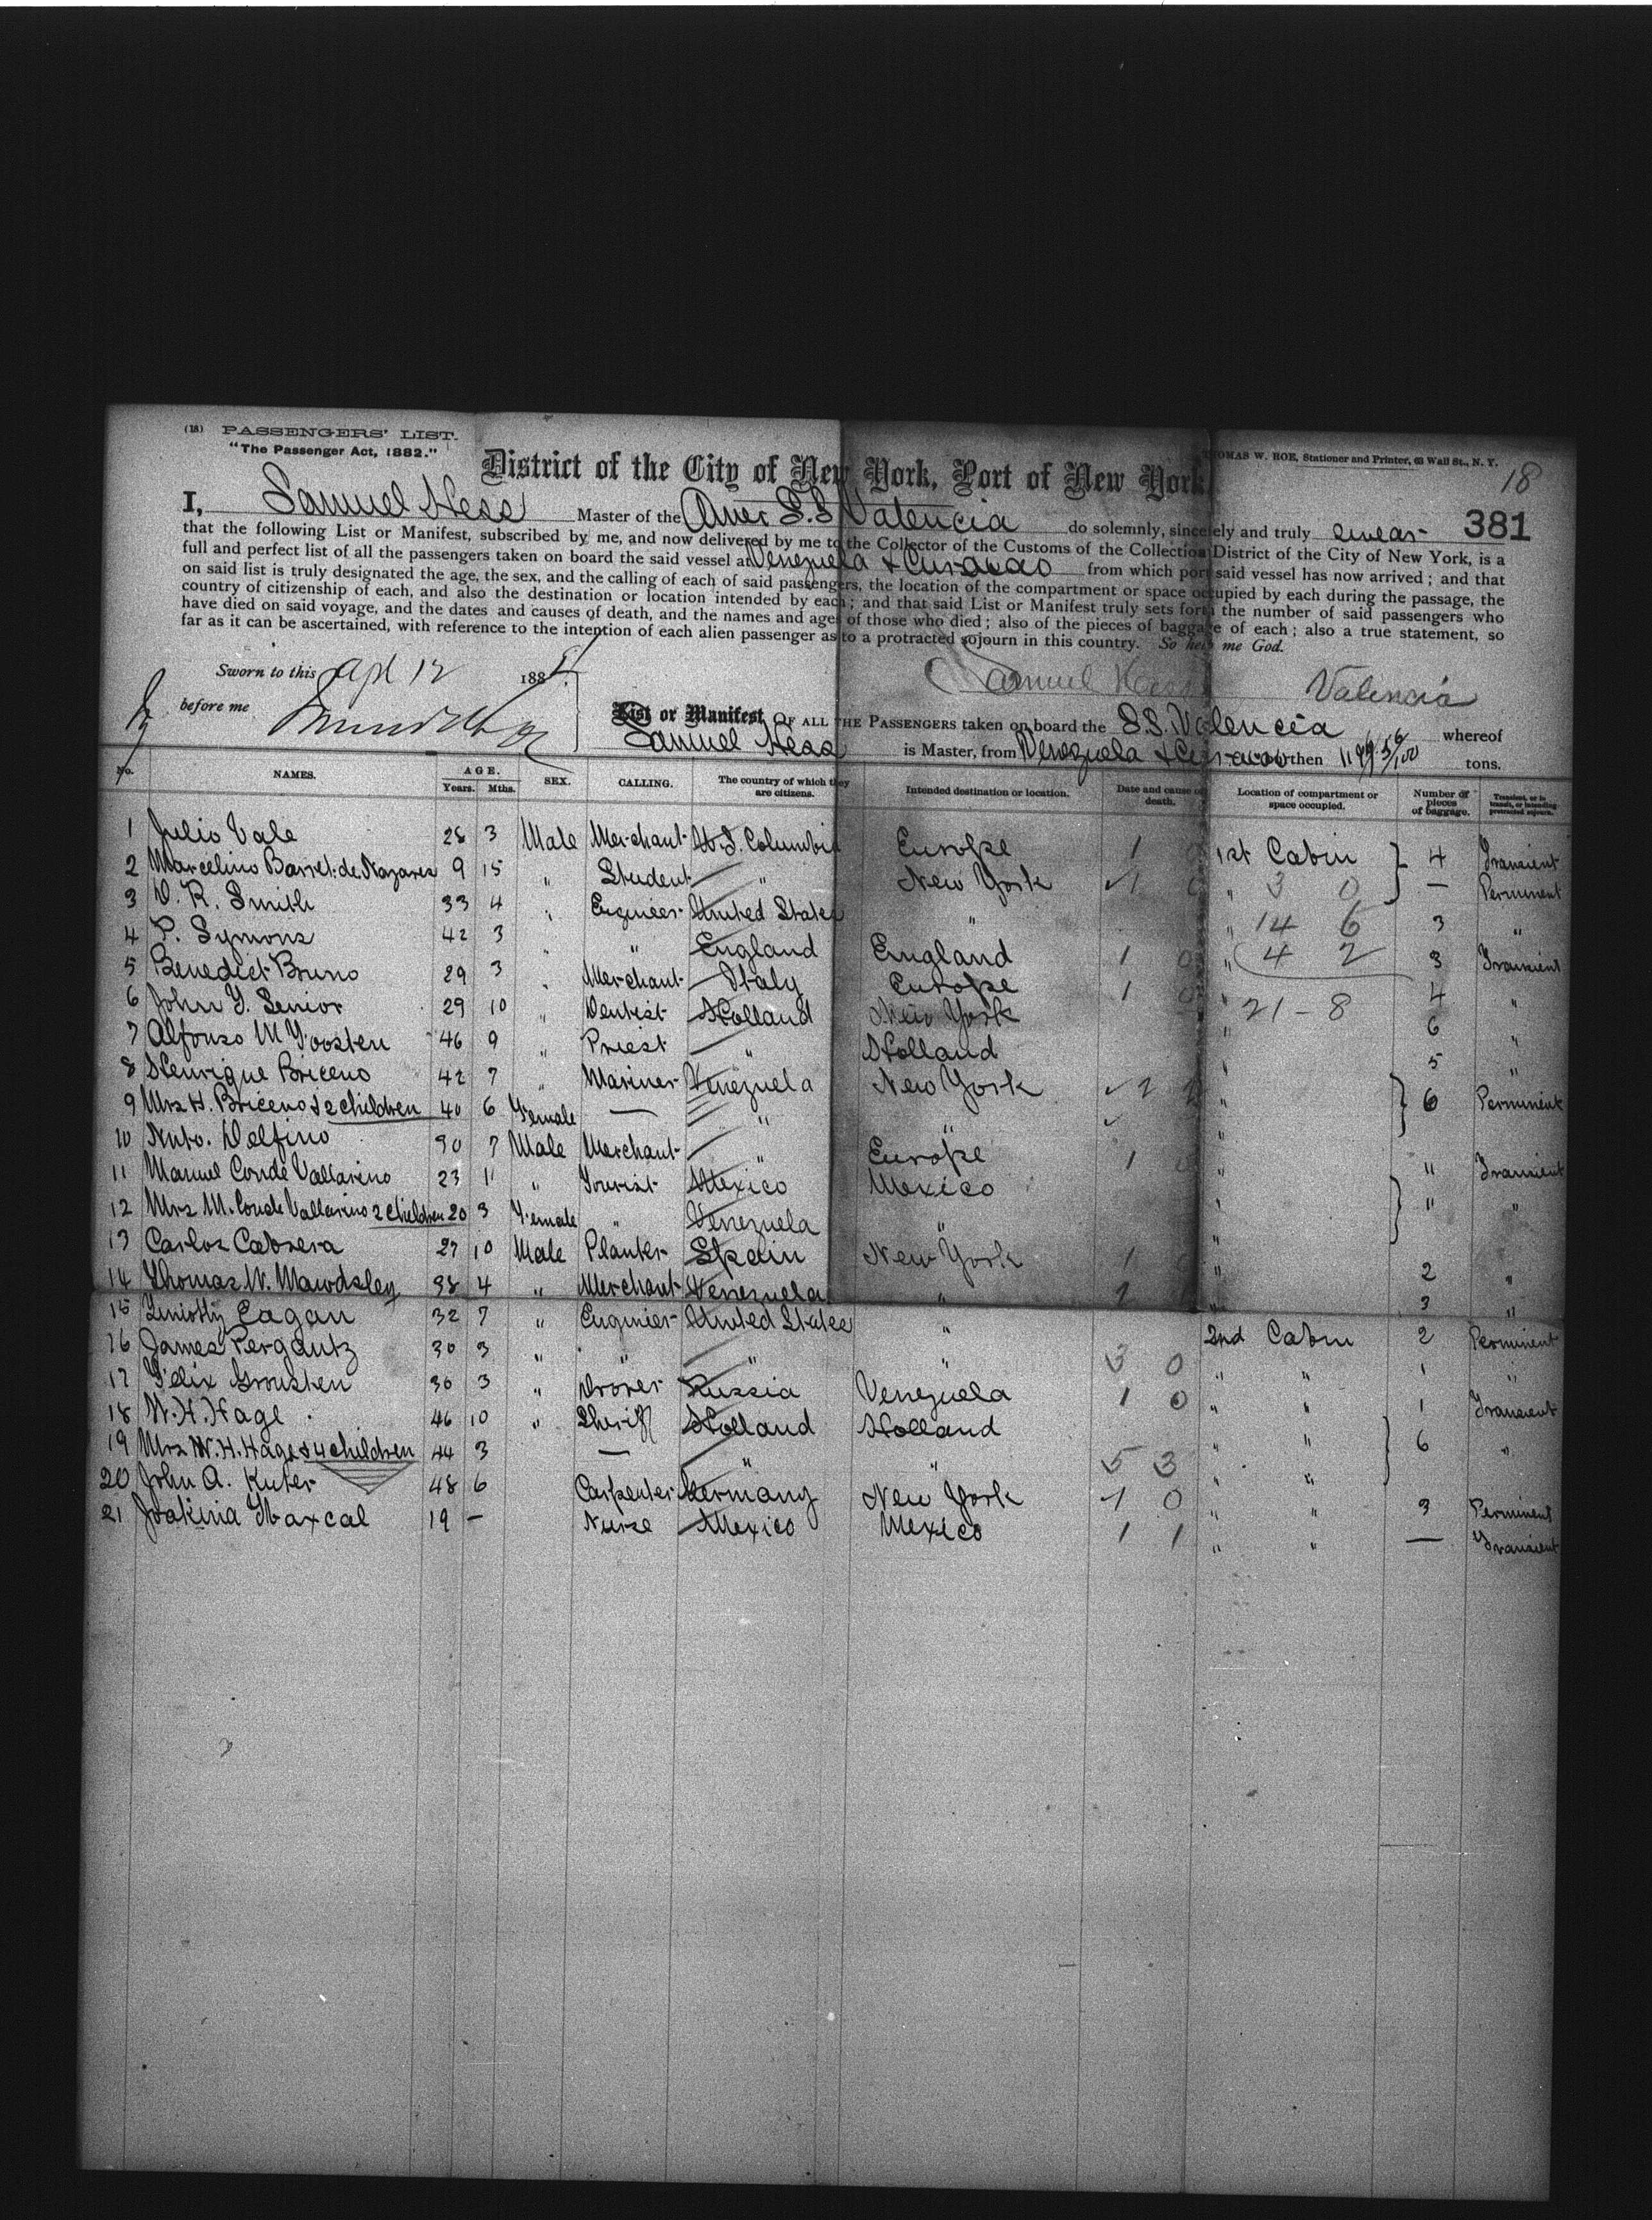 (18) PASSENGERS' LIST.
"The Passenger Act, 1882."
THOMAS W. HOE, Stationer and Printer, 63 Wall St., N. Y.
18
District of the City of New York, Port of New York
381
I, Samuel Hess Master of the Amer S.S Valencia do solemnly, sincerely and truly swear
that the following List or Manifest, subscribed by me, and now delivered by me to the Collector of the Customs of the Collection District of the City of New York, is a
full and perfect list of all the passengers taken on board the said vessel at Venezuela & Curacao from which port said vessel has now arrived; and that
on said list is truly designated the age, the sex, and the calling of each of said passengers, the location of the compartment or space occupied by each during the passage, the
country of citizenship of each, and also the destination or location intended by each; and that said List or Manifest truly sets forth the number of said passengers who
have died on said voyage, and the dates and causes of death, and the names and ages of those who died; also of the pieces of baggage of each; also a true statement, so
far as it can be ascertained, with reference to the intention of each alien passenger as to a protracted sojourn in this country. So help me God.
Sworn to this Apl 12 188
Samuel Hess
Valencia
before me
List or Manifest OF ALL THE PASSENGERS taken on board the S.S. Valencia whereof
Samuel Hess is Master, from Venezuela & Curacao burthen tons.
No. NAMES. AGE. Years. Mths. SEX. CALLING. The country of which they are citizens. Intended destination or location. Date and cause of death. Location of compartment or space occupied. Number of pieces of baggage. Transient, or in transit, or intending protracted sojourn.
1 Julio Vale 28 3 Male Merchant U.S. Columbia Europe 1 0 1st Cabin 4 Transient
2 Marcelino Barret de Nazares 9 15 " Student " New York 1 0 " 3 0 — Perminent
3 D. R. Smith 33 4 " Engineer United States " " 14 6 3 "
4 P. Symons 42 3 " " England England 1 0 " 4 2 3 Transient
5 Benedict Bruno 29 3 " Merchant Italy Europe 1 0 " 4 "
6 John Y. Senior 29 10 " Dentist Holland New York " 21 - 8 6
7 Alfonso M Joosten 46 9 " Priest " Holland " 5 "
8 Henrique Briceno 42 7 " Mariner Venezuela New York 2 " 6 Perminent
9 Mrs H. Briceno & 2 children 40 6 Female — " " "
10 Anto. Delfino 30 7 Male Merchant " Europe 1 0 " " Transient
11 Manuel Conde Vallarino 23 11 " Tourist Mexico Mexico " " "
12 Mrs M. Conde Vallarino 2 children 20 3 Female " Venezuela " "
13 Carlos Cabrera 27 10 Male Planter Spain New York 1 " 2 "
14 Thomas W. Mawdsley 38 4 " Merchant Venezuela " 1 " 3 "
15 Timothy Eagan 32 7 " Engineer United States " 2nd Cabin 2 Perminent
16 James Pergantz 30 3 " " " " 3 0 " " 1 "
17 Felix Grousten 30 3 " Drover Russia Venezuela 1 0 " " 1 Transient
18 W. H. Hage 46 10 " Sheriff Holland Holland " " 6 "
19 Mrs W. H. Hage & 4 children 44 3 — " " 5 3 " "
20 John A. Kuter 48 6 Carpenter Germany New York 1 0 " " 3 Perminent
21 19 - Nurse Mexico Mexico 1 1 " " — Transient